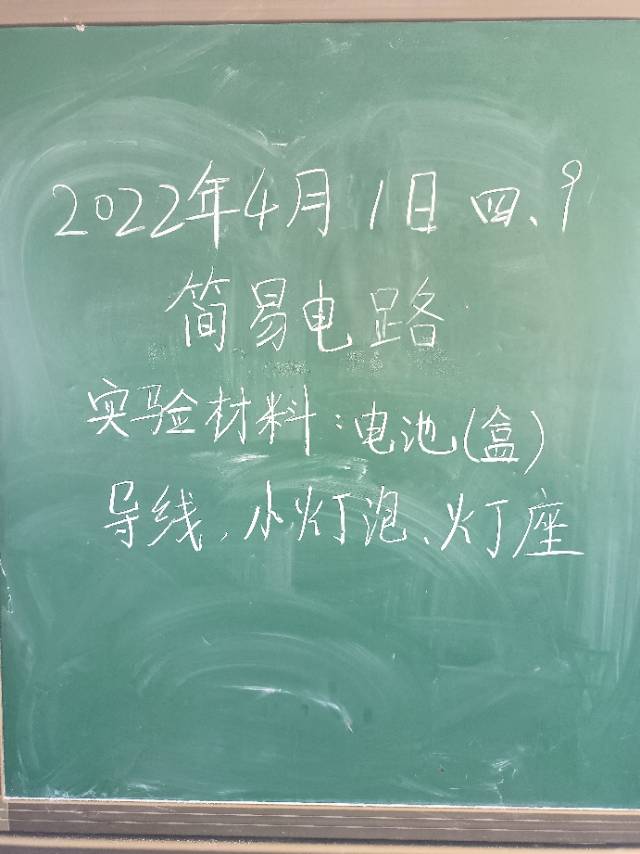 2022年4月1日 四、9
简易电路
实验材料：电池(盒)
导线、小灯泡、灯座